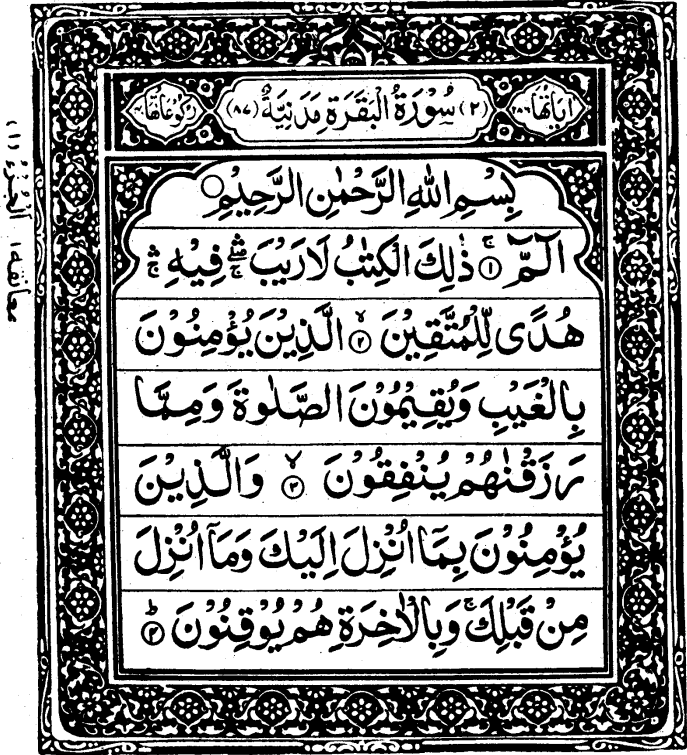 اٰیَاتُهَا ٢٨٦ (٢) سُوْرَةُ الْبَقَرَةِ مَدَنِیَّةٌ (٨٧) رُكُوْعَاتُهَا
بِسْمِ اللهِ الرَّحْمٰنِ الرَّحِیْمِ
الٓمّٓ ۚ﴿١﴾ ذٰلِكَ الْكِتٰبُ لَا رَیْبَ ۛۖۚ فِیْهِ ۛۚ
هُدًی لِّلْمُتَّقِیْنَ ۙ﴿٢﴾ الَّذِیْنَ یُؤْمِنُوْنَ
بِالْغَیْبِ وَیُقِیْمُوْنَ الصَّلٰوةَ وَمِمَّا
رَزَقْنٰهُمْ یُنْفِقُوْنَ ۙ﴿٣﴾ وَالَّذِیْنَ
یُؤْمِنُوْنَ بِمَاۤ اُنْزِلَ اِلَیْكَ وَمَاۤ اُنْزِلَ
مِنْ قَبْلِكَ ۚ وَبِالْاٰخِرَةِ هُمْ یُوْقِنُوْنَ ؕ﴿٤﴾